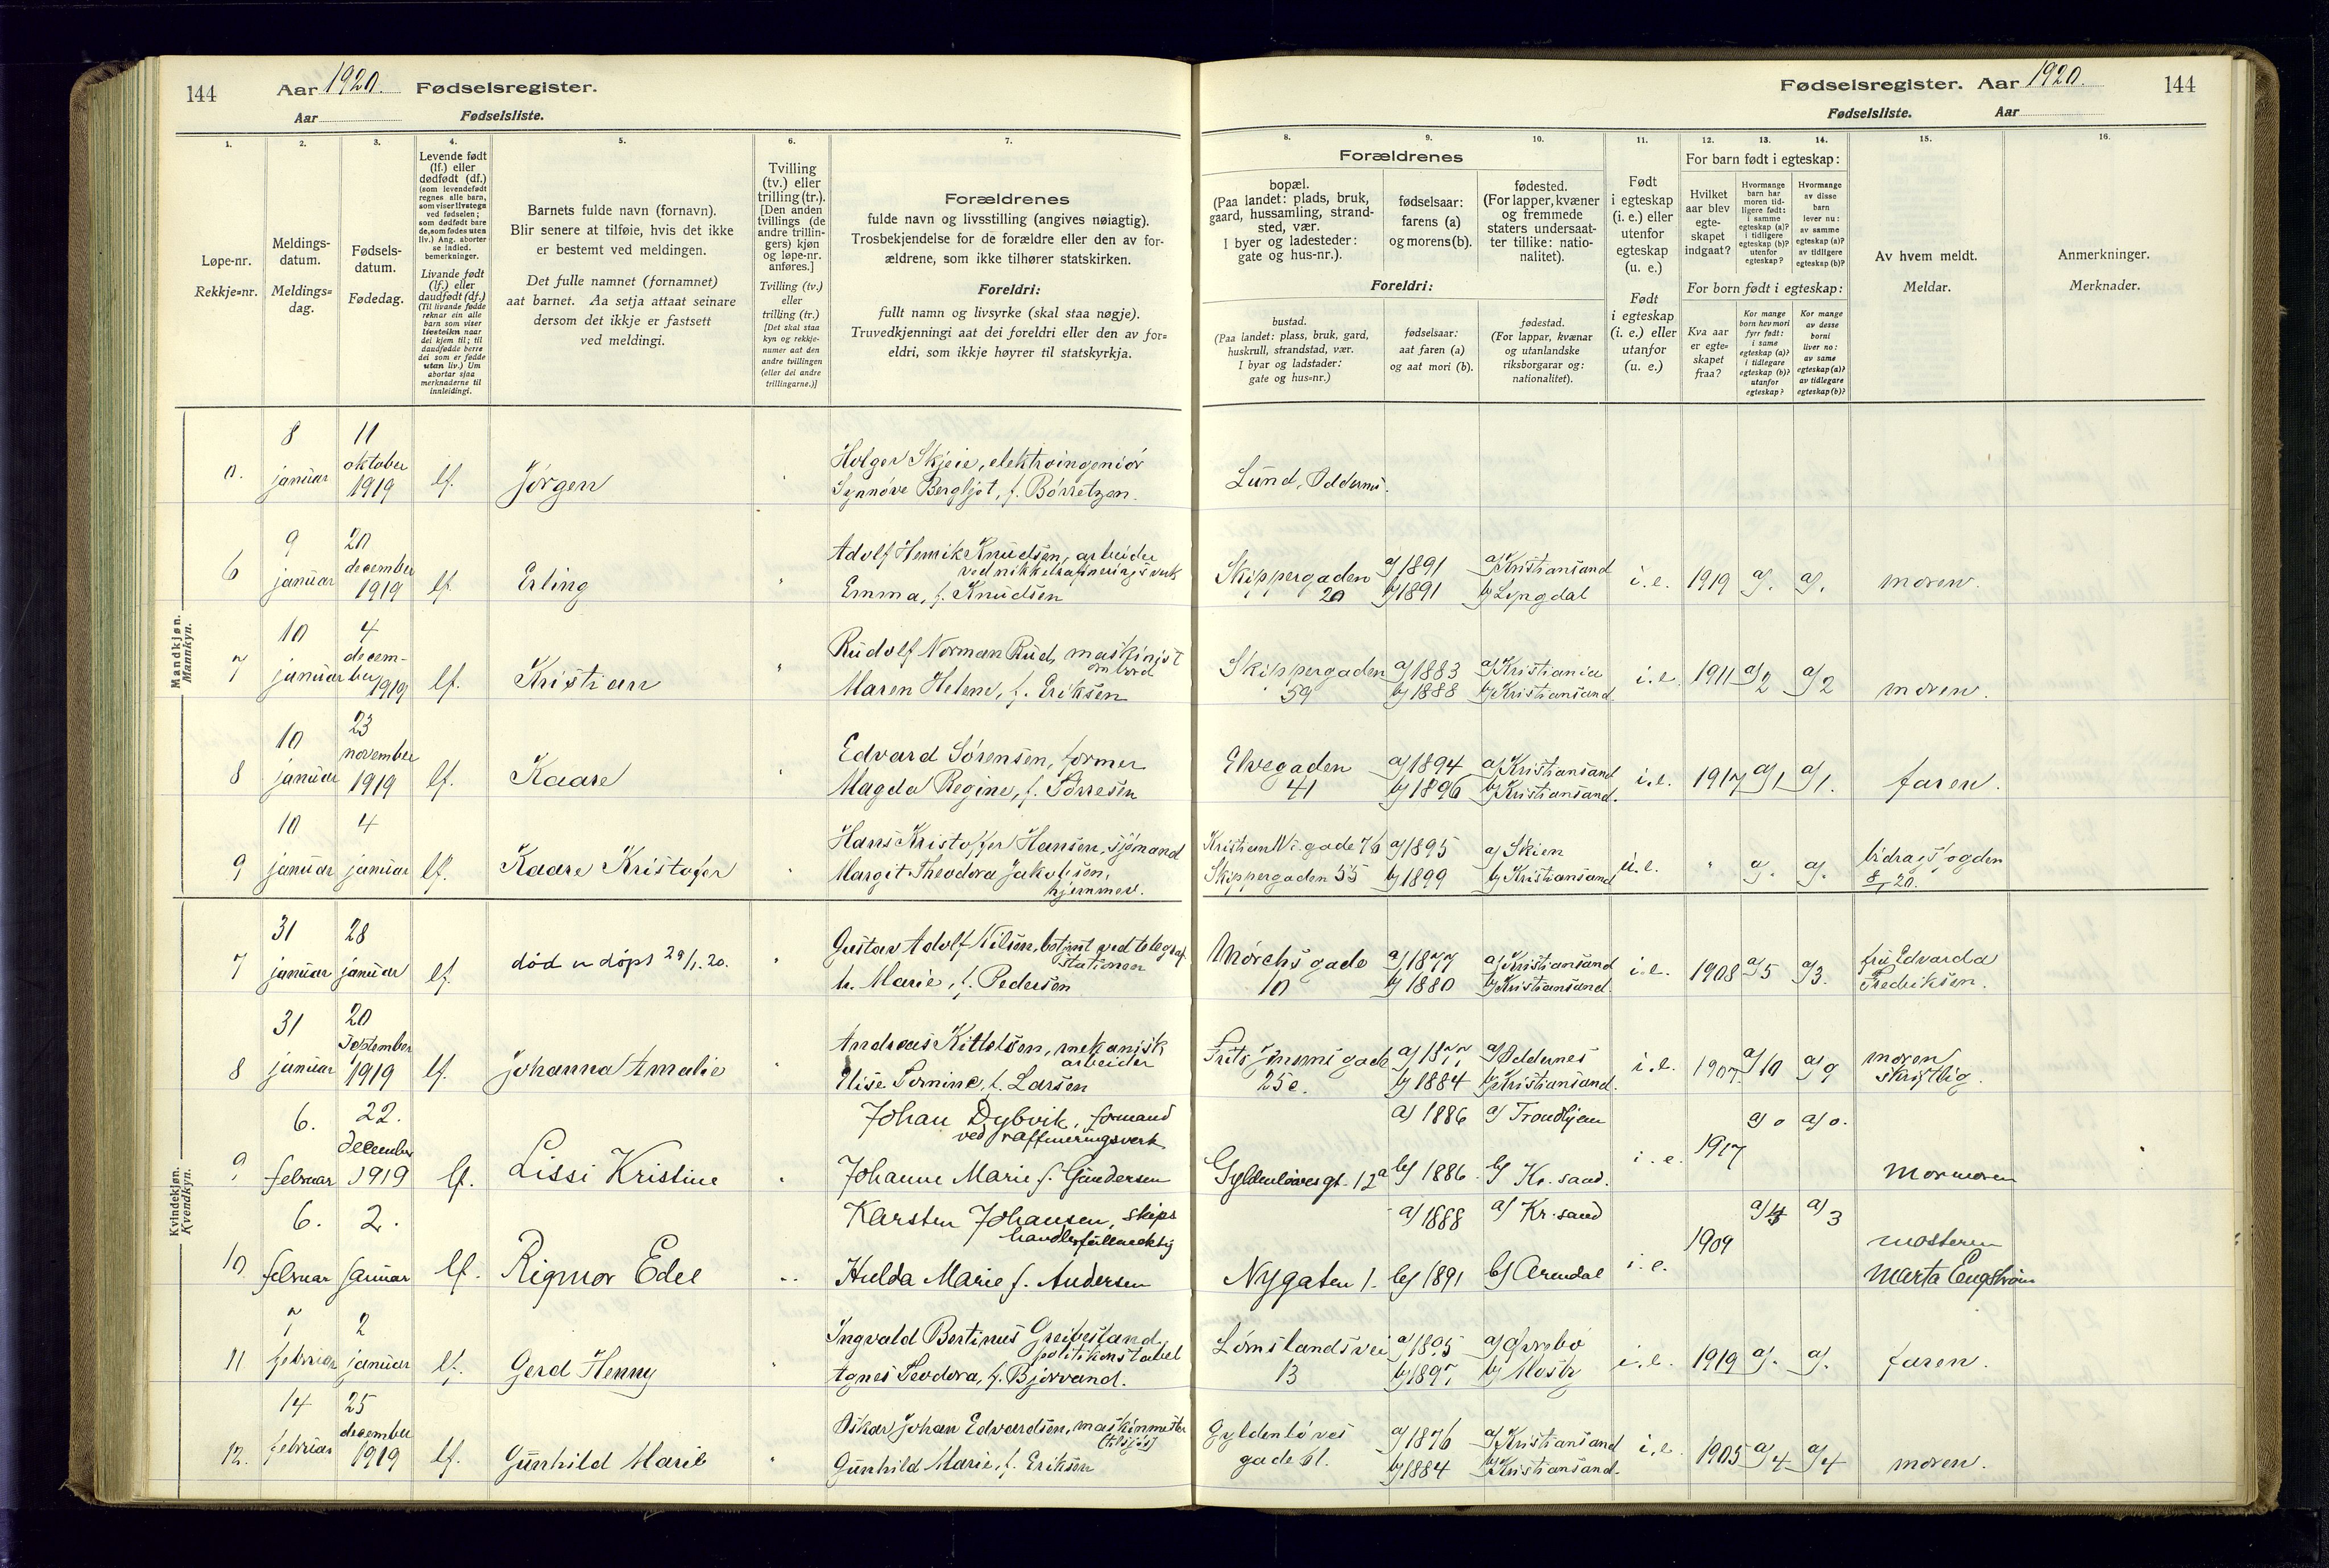 144
Aar 1920. Fødselsregister.
Aar Fødselsliste.
Fødselsregister. Aar 1920.
144
Fødselsliste. Aar
1. 2. 3. 4. 5. 6. 7.
8. 9. 10. 11. 12. 13. 14. 15. 16.
Løpe-nr.
Rekkje=nr.
Meldings-
datum.
Meldings=
dag.
Fødsels-
datum.
Fødedag.
Levende født
(lf.) eller
dødfødt (df.)
(som levendefødt
regnes alle barn,
som viser livstegn
ved fødselen;
som dødfødt bare
de, som fødes uten
liv.) Ang. aborter
se indled.
bemerkninger.
Livande født
(lf.) eller
daudfødt (df.)
(Til livande fødde
reknar ein alle
barn som viser
livsteikn naar
dei kjem til; til
daudfødde berre
dei som er fødde
utan liv.) Um
abortar sjaa
merknaderne til
innleidingi.
Barnets fulde navn (fornavn).
Blir senere at tilføie, hvis det ikke
er bestemt ved meldingen.
Det fulle namnet (fornamnet)
aat barnet. Aa setja attaat seinare
dersom det ikkje er fastsett
ved meldingi.
Tvilling
(tv.) eller
trilling (tr.).
[Den anden
tvillings (de
andre trillin-
gers) kjøn
og løpe-nr.
anføres.]
Tvilling (tv.)
eller
trilling (tr.)
[Det skal staa
kyn og rekkje-
numer aat den
andre tvillingen
(eller dei andre
trillingarne.)]
Forældrenes
fulde navn og livsstilling (angives nøiagtig).
Trosbekjendelse for de forældre eller den av for-
ældrene, som ikke tilhører statskirken.
Foreldri:
fullt namn og livsyrke (skal staa nøgje).
Truvedkjenningi aat dei foreldri eller den av for=
eldri, som ikkje høyrer til statskyrkja.
Forældrenes
bopæl.
(Paa landet: plads, bruk,
gaard, hussamling, strand-
sted, vær.
I byer og ladesteder:
gate og hus-nr.).
fødselsaar:
farens (a)
og morens (b).
fødested.
(For lapper, kvæner
og fremmede
staters undersaat-
ter tillike: natio-
nalitet).
Foreldri:
bustad.
(Paa landet: plass, bruk, gard,
huskrull, strandstad, vær.
I byar og ladstader:
gate og hus=nr.)
fødselsaar:
aat faren (a)
og aat mori (b).
fødestad.
(For lappar, kvænar
og utanlandske
riksborgarar og:
nationalitet).
Født
i egteskap
(i. e.) eller
utenfor
egteskap
(u. e.)
Født
i egteskap
(i. e.) eller
utanfor
(u. e.)
For barn født i egteskap:
Hvilket
aar blev
egte-
skapet
indgaat?
Hvormange
barn har
moren tid-
ligere født:
i samme
egteskap (a)?
i tidligere
egteskap (b)?
utenfor
egteskap?
Hvormange
av disse
barn
lever nu:
av samme
egteskap (a)?
av tidligere
egteskap (b)?
For born født i egteskap:
Kva aar
er egte=
skapet
fraa?
Kor mange
born hev mori
fyrr født:
i same
egteskap (a)?
i tidlegare
egteskap (b)?
utanfor
egteskap?
Kor mange
av desse
borni
liver no:
av same
egteskap (a)?
av tidlegare
egteskap (b)?
Av hvem meldt.
Meldar.
Anmerkninger.
Merknader.
Mandkjøn.
Mannkyn.
0. 8 januar 11 oktober 1919 lf. Jørgen Holger Skjeie, elektroingeniør
Synnøve Bergljot, f. Børretzen. Lund, Oddernes.
6 9 januar 20 december 1919 lf. Erling Adolf Henrik Knudsen, arbeider
ved nikkelrafineringsverk
Emma, f. Knudsen Skippergaden 20 a/1891 b/1891 a/Kristiansand b/Lyngdal i.e. 1919 a/. a/. moren.
7 10 januar 4 december 1919 lf. Kristian Rudolf Norman Ruds maskinist
ombord
Maren Helene, f. Eriksen Skippergaden 59 a/1883 b/1888 a/Kristiania b/Kristiansand i.e. 1911 a/2 a/2 moren.
8 10 januar 23 november 1919 lf. Kaare Edvard Sørensen, former
Magda Regine, f. Tørresen Elvegaden 41 a/1894 b/1896 a/Kristiansand b/Kristiansand. i.e. 1917 a/1 a/1. faren.
9 10 januar 4 januar lf. Kaare Kristofer Hans Kristoffer Hansen, sjømand
Margit Theodora Jakobsen,
hjemmev. Kristian IV. gade 76 Skippergaden 55 a/1895 b/1899 a/Skien b/Kristiansand u.e. " a/. a/. bidragsfogden
8/1 20.
Kvindekjøn.
Kvendkyn.
7 31 januar 28 januar lf. død u døpt 29/1.20. Gustav Adolf Nilsen, betjent ved telegraf
stationen
h. Marie, f. Pedersen Mørchs gade 10 a/1877 b/1880 a/Kristiansand b/Kristiansand. i.e. 1908 a/5 a/3. fru Edvarda
Fredriksen.
8 31 januar 20 september 1919 lf. Johanna Amalie Andreas Kittelsen, mekanisk
arbeider
Elise Tomine, f. Larsen gade 25e. a/1877 b/1884 a/Oddernes b/Kristiansand. i.e. 1907. a/10 a/9 moren
skriftlig.
9 6. februar 22. december 1919 lf. Lissi Kristine Johan Dybvik, formand
ved raffineringsverk
Johanne Marie f. Gundersen Gyldenløvesgt. 12a a/1886 b/1886 a/Trondhjem b/Kr.sand. i.e. 1917 a/0 a/0. Mormoren
10 6. februar 2. januar lf. Rigmor Edel Karsten Johansen, skips
handlerfuldmektig
Hulda Marie f. Andersen Nygaten 1. a/1888 b/1891 a/Kr.sand b/Arendal i.e. 1909 a/ a/3 mosteren
Marta Engstrøm
11 7 februar 2 januar lf. Gerd Henny Ingvald Bertinus Greibesland,
politikonstabel
Agnes Teodora, f. Bjorvand. Lømslandsvei 13 a/1895 b/1897 a/Øvrebø b/Mosby i.e. 1919 a/. a/. faren.
12. 14 februar 25 december 1919 lf. Gunhild Marie Oskar Johan Edvardsen, maskinmester
(tilsjøs)
Gunhild Marie, f. Eriksen Gyldenløves gade 61. a/1876 b/1884 a/Kristiansand b/Kristiansand. i.e. 1905 a/4 a/4 moren.